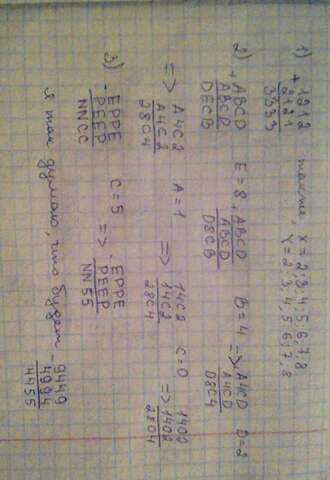 1) + 1212 также x = 2;3;4;5;6;7;8
2121 y = 2;3;4;5;6;7;8
3333
2) + ABCD E=8, + ABCD B=4 => A4CD D=2
ABCD ABCD A4CD
DECB D8CB D8C4
=> A4C2 A=1 => 14C2 C=0 => 1402
A4C2 14C2 1402
28C4 28C4 2804
3) - EPPE C=5 => - EPPE
PEEP PEEP
NNCC NN55
я так думаю, что будет - 9449
4994
4455